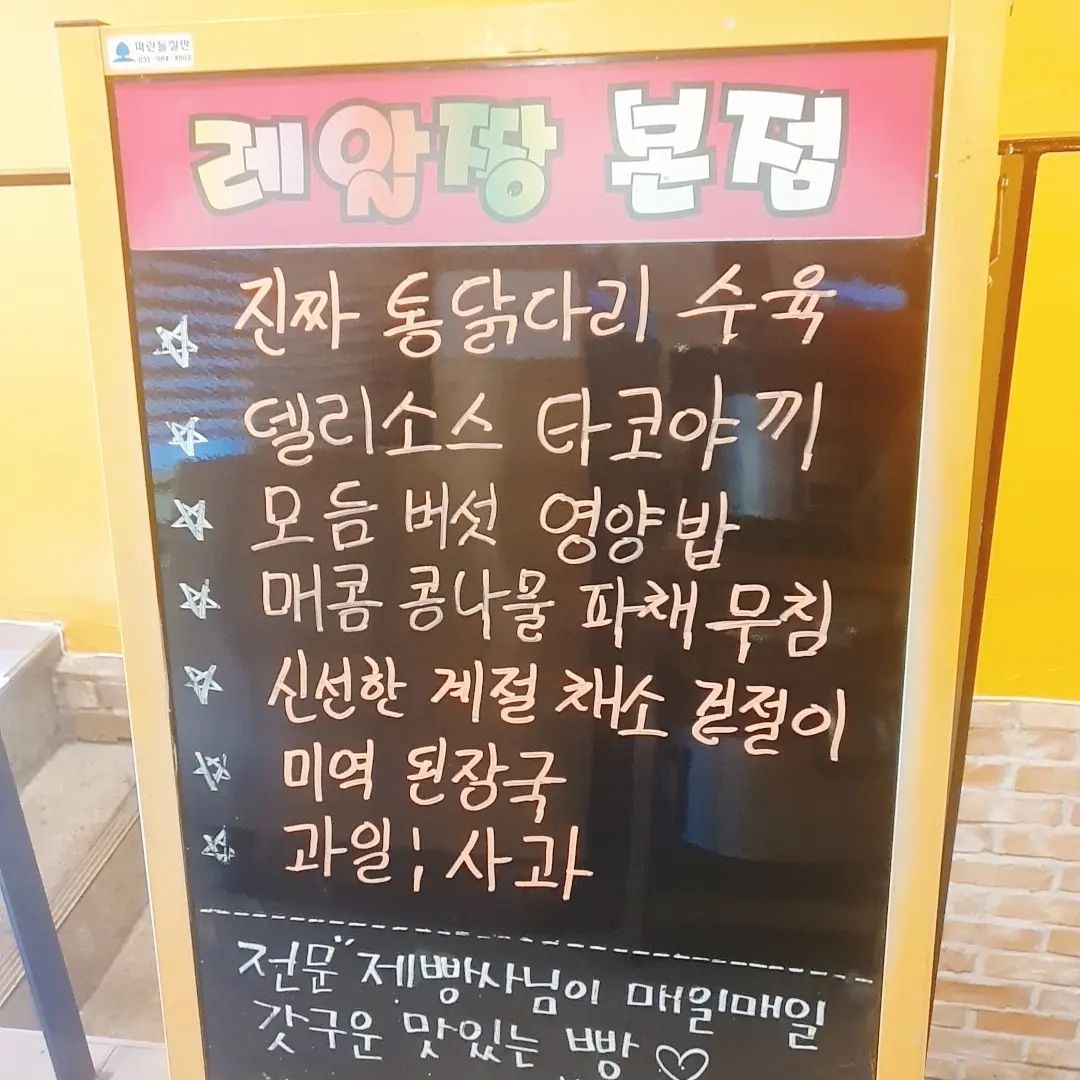 파란들칠판
레알짱 본점
진짜 통닭다리 수육
델리소스 타코야끼
모듬 버섯 영양밥
매콤 콩나물 파채무침
신선한 계절 채소 겉절이
미역 된장국
과일; 사과
전문"제빵사님이 매일매일
갓구운 맛있는 빵♡